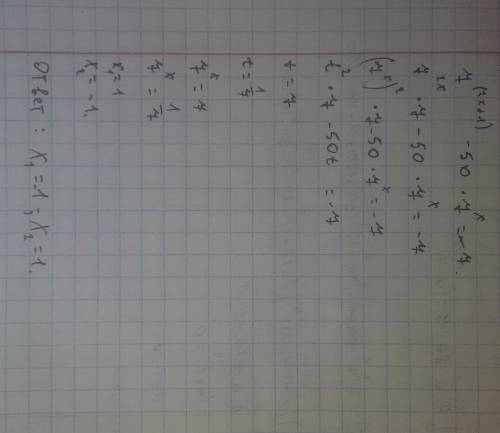 7^(2x+1) - 50 · 7^x = -7.
7^2x · 7 - 50 · 7^x = -7
(7^x)^2 · 7 - 50 · 7^x = -7
t^2 · 7 - 50t = -7
t = 7
t = 1/7
7^x = 7
7^x = 1/7
x₁ = 1
x₂ = -1.
Ответ: x₁ = 1; x₂ = 1.